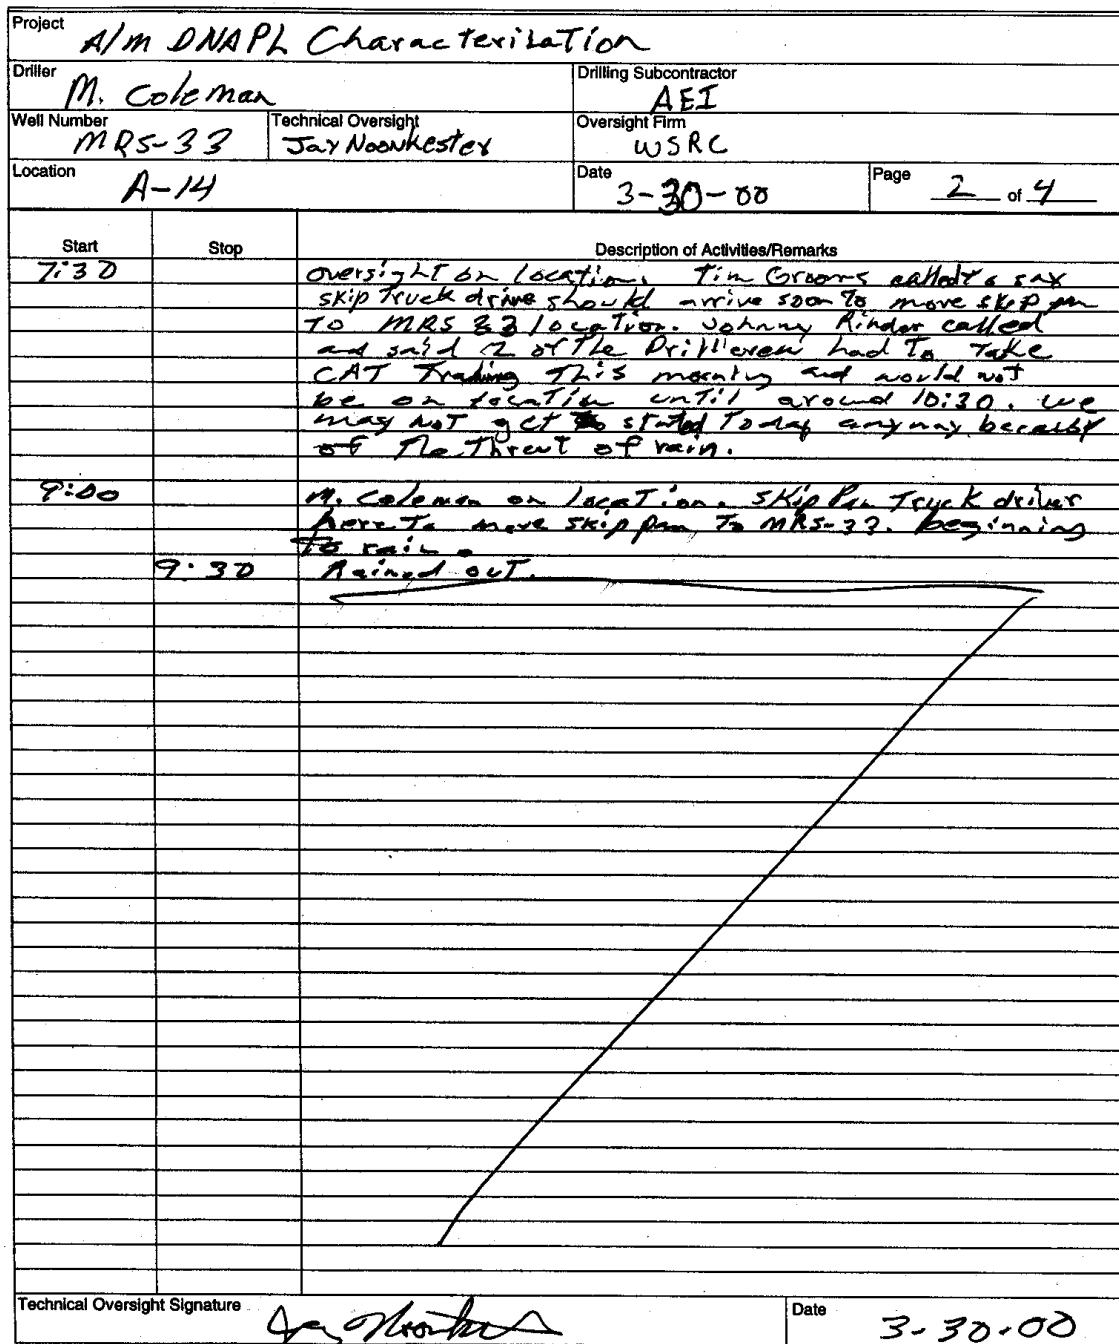 Project
A/M DNAPL Characterization
Driller
M. Coleman
Drilling Subcontractor
AEI
Well Number
MRS-33
Technical Oversight
Jay Noonkester
Oversight Firm
WSRC
Location
A-14
Date
3-30-00
Page 2 of 4
Start Stop Description of Activities/Remarks
7:30 oversight on location. Tim Grooms called to say
skip truck drive should arrive soon to move skip pan
to MRS 33 location. Johnny called
and said 2 of the Drill crew had to take
CAT this morning and would not
be on location until around 10:30. we
may not get started today anyway because
of the threat of rain.
9:00 M. Coleman on location. Skip Pan Truck driver
here to move skip pan to MRS-33. beginning
to rain.
9:30 Rained out.
Technical Oversight Signature
Date
3-30-00